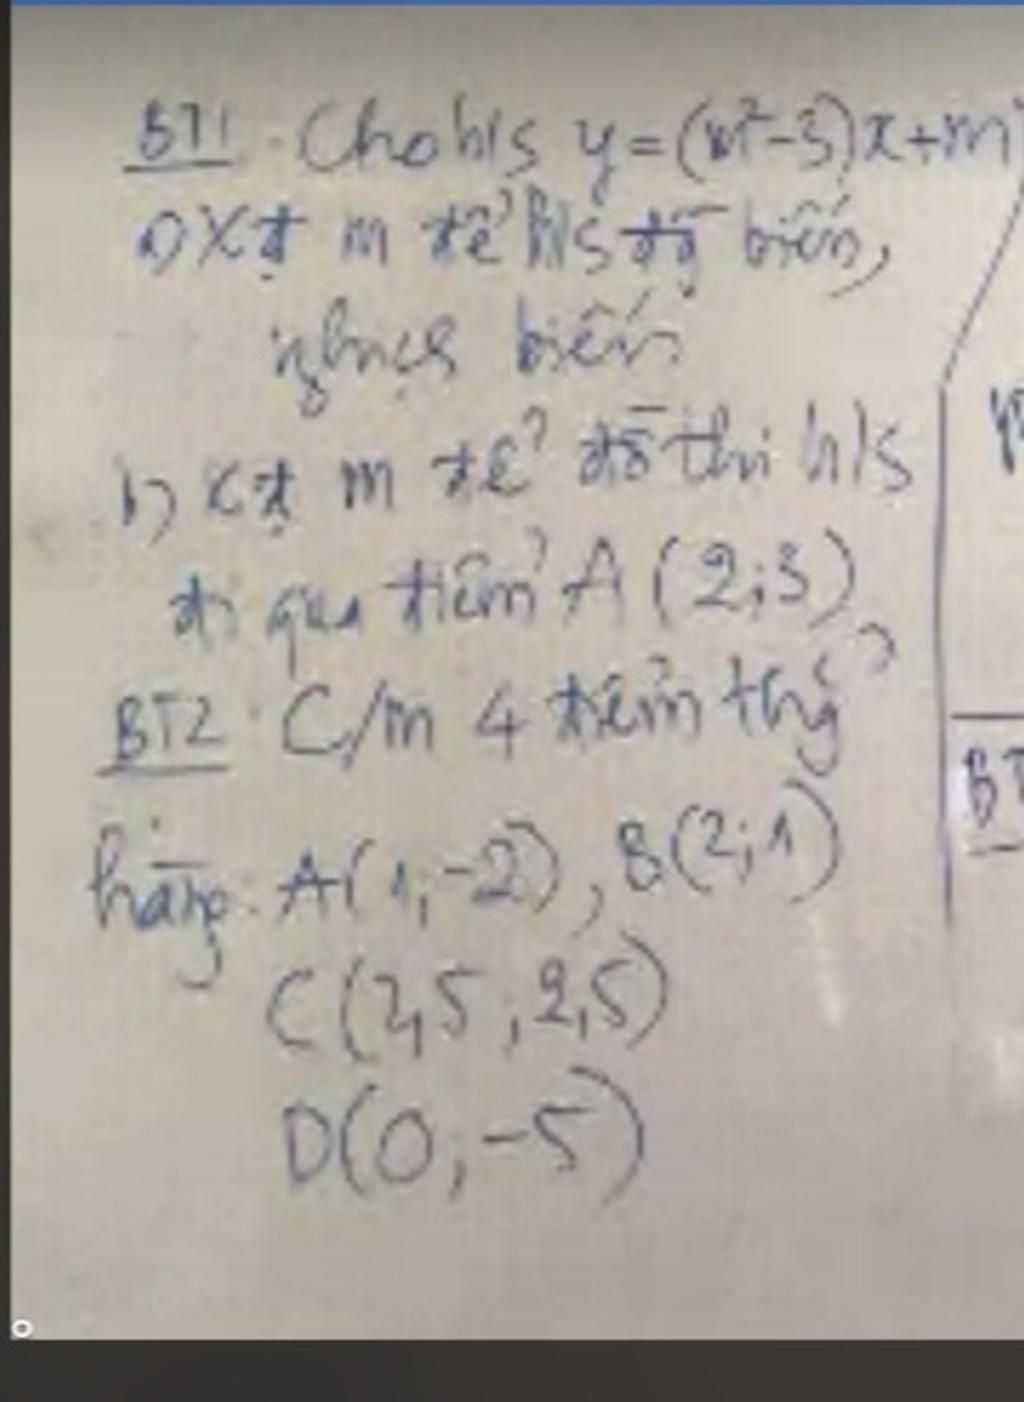 BT1: Cho h/s y = (m²-3)x+m
a) Xđ m để h/s đg biến,
nghịch biến
b) Xđ m để đồ thị h/s
đi qua điểm A (2;3)
BT2: C/m 4 điểm thg
hàng: A(1;-2), B(2;1)
C(2,5;2,5)
D(0;-5)
BT